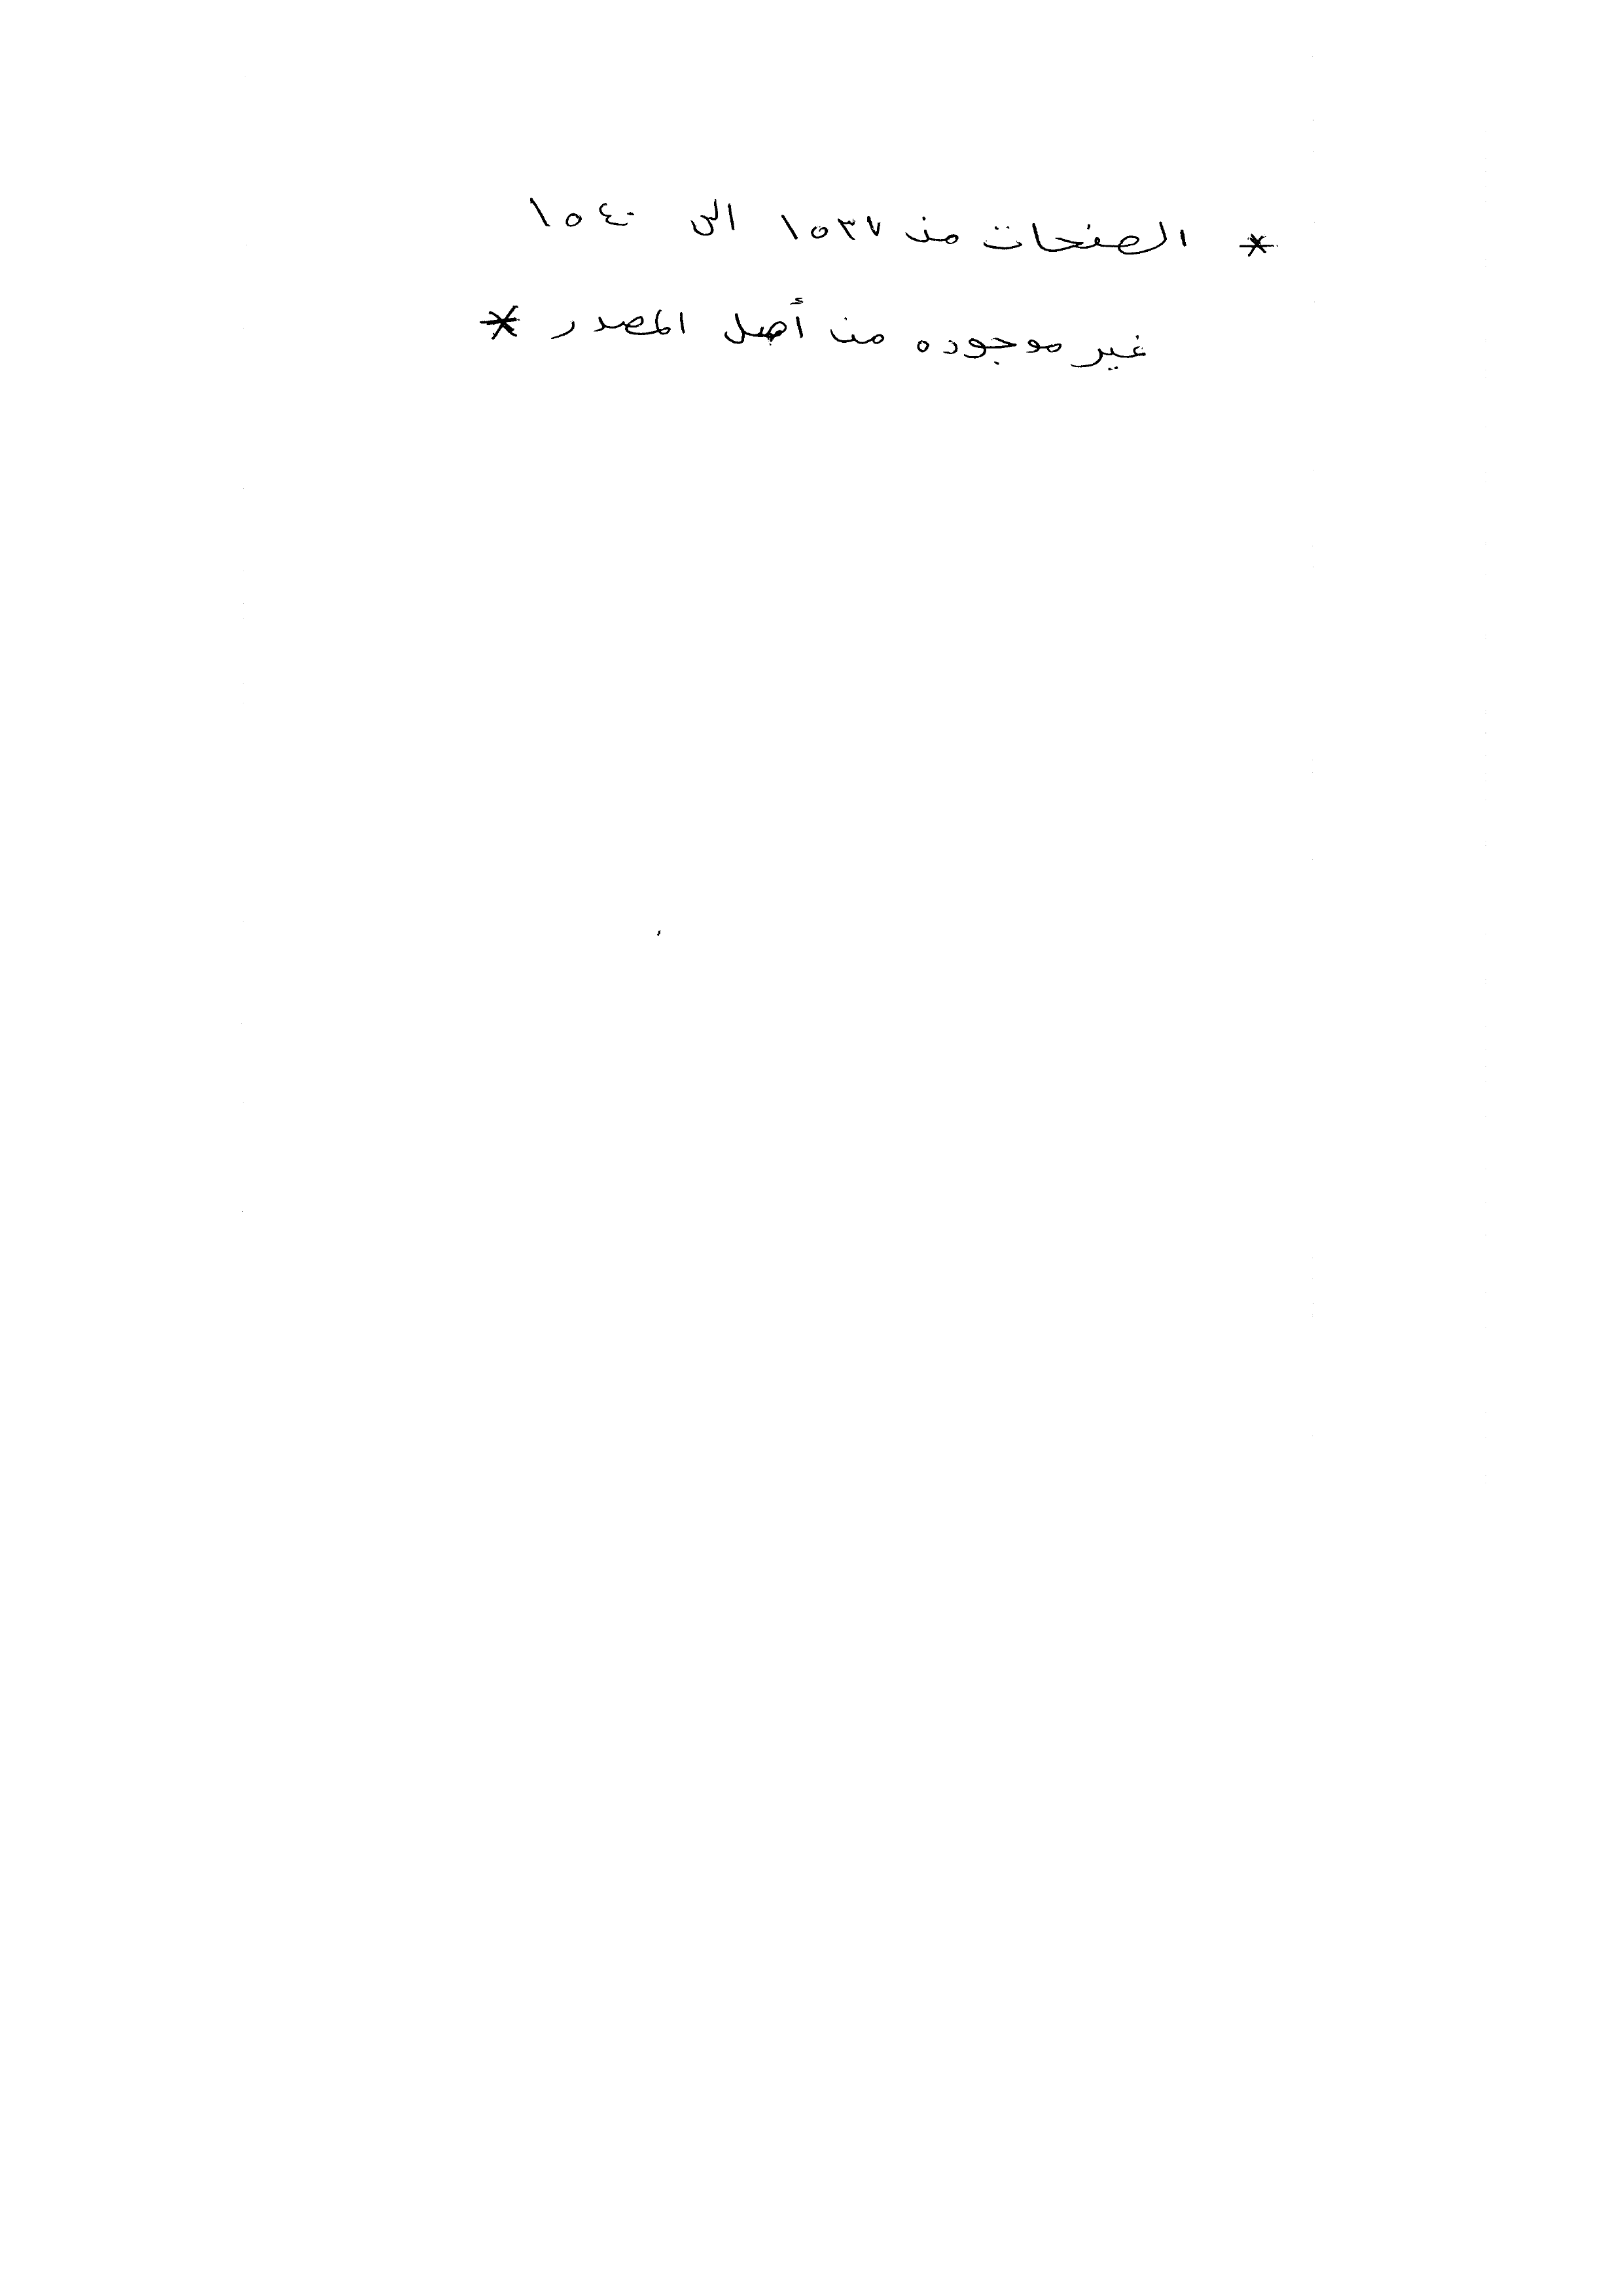 * الصفحات من ١٥٣٧ الى ١٥٤٠
غير موجوده من أصل المصدر *